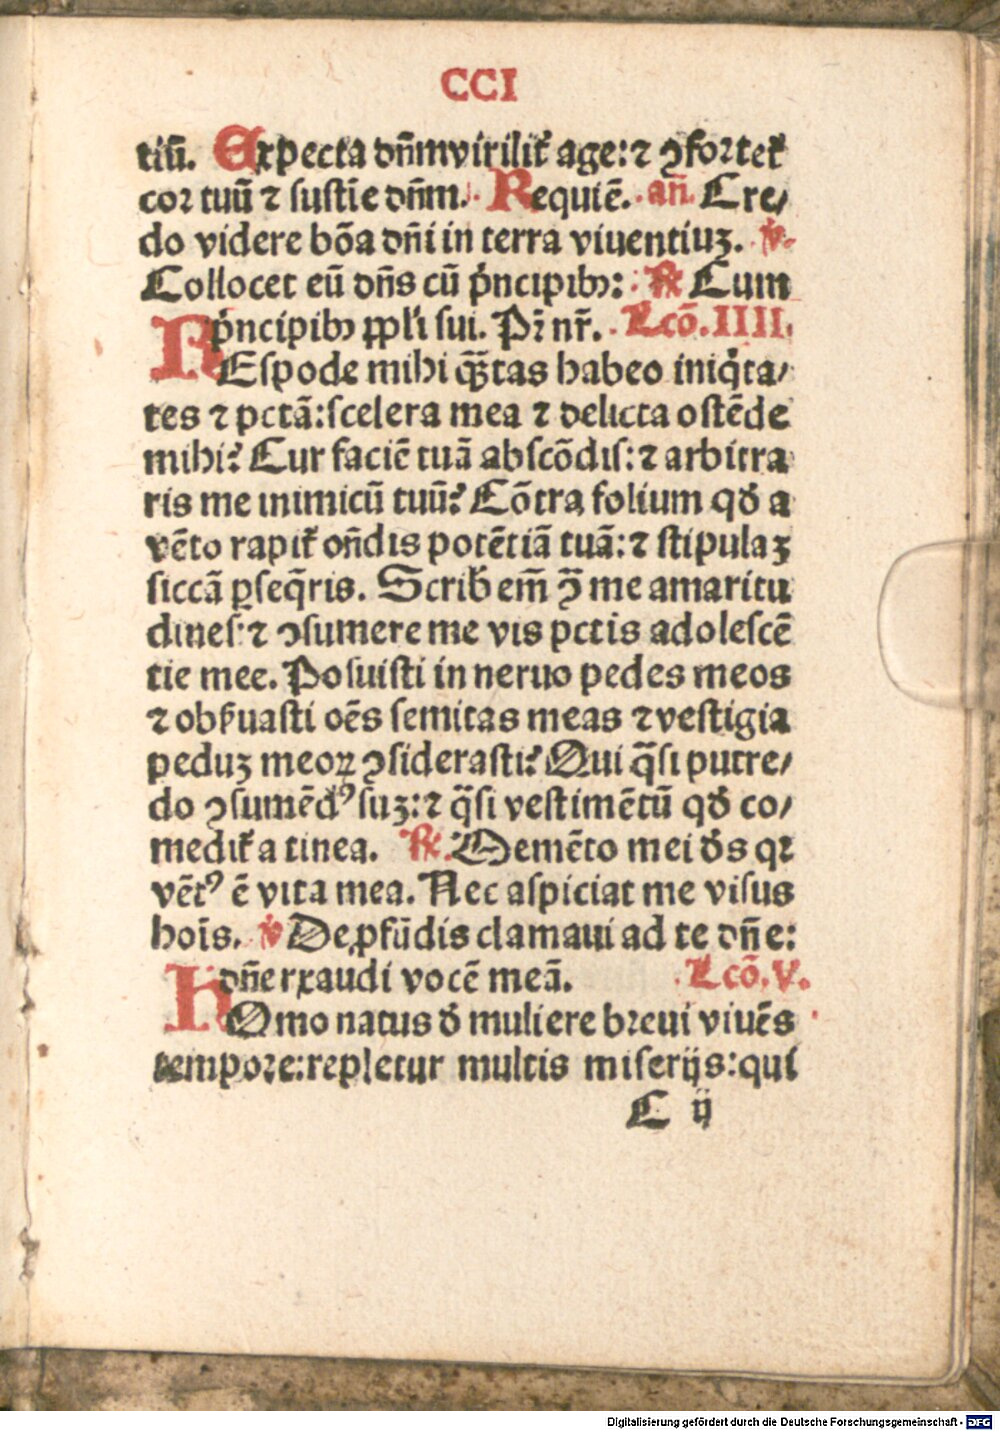 CCI
tiū. Expecta dn̄m viriliẗ age: ⁊ ꝯforteť
cor tuū ⁊ sustīe dn̄m. Requiē. an̄. Cre/
do videre bōa dn̄i in terra viuentiuꝫ. ℣.
Collocet eū dn̄s cū pͥncipibꝰ: ℟ Cum
pͥncipibꝰ ppl'i sui. Pr̄ nr̄. Lcō. IIII.
REspōde mihi qͣ̄tas habeo iniqͥta/
tes ⁊ pctā: scelera mea ⁊ delicta ostēde
mihi? Cur faciē tuā abscōdis: ⁊ arbitra
ris me inimicū tuū? Cōtra folium qđ a
vēto rapiť on̄dis potētiā tuā: ⁊ stipulaꝫ
siccā ꝑseq̄ris. Scrib' em̄ ꝯͣ me amaritu
dines: ⁊ ꝯsumere me vis pctis adolescē
tie mee. Posuisti in neruo pedes meos
⁊ obẜuasti oēs semitas meas ⁊ vestigia
peduꝫ meoꝝ ꝯsiderasti? Qui qͣsi putre/
do ꝯsumēdꝰ suꝫ: ⁊ qͣsi vestimētū qđ co/
mediť a tinea. ℟. Memēto mei đs qꝛ
vētꝰ ē vita mea. Nec aspiciat me visus
hoīs. ℣ De ꝓfūdis clamaui ad te dn̄e:
dn̄e exaudi vocē meā. Lcō. V.
HOmo natus đ muliere breui viuēs
tempore: repletur multis miserijs: qui
C ij
Digitalisierung gefördert durch die Deutsche Forschungsgemeinschaft - DFG